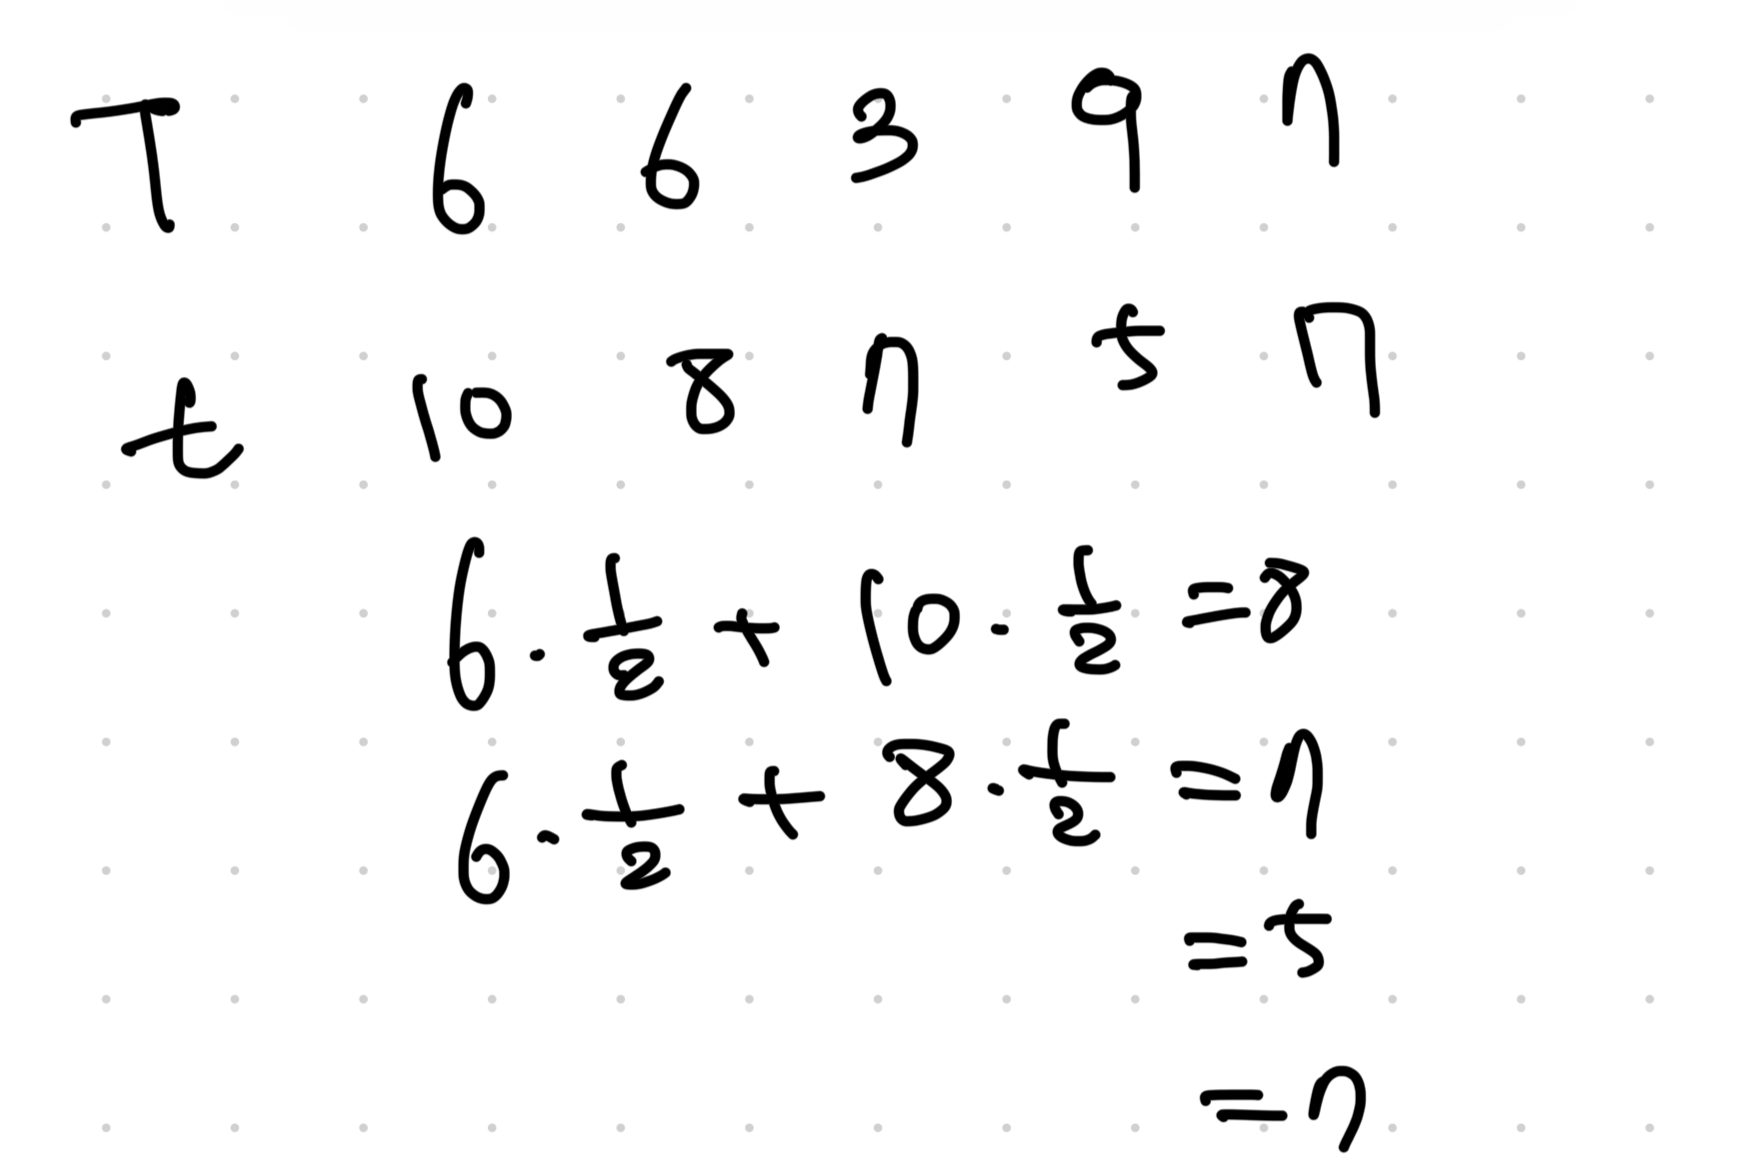 T 6 6 3 9 7
t 10 8 7 5 7
6 · 1/2 + 10 · 1/2 = 8
6 · 1/2 + 8 · 1/2 = 7
= 5
= 7